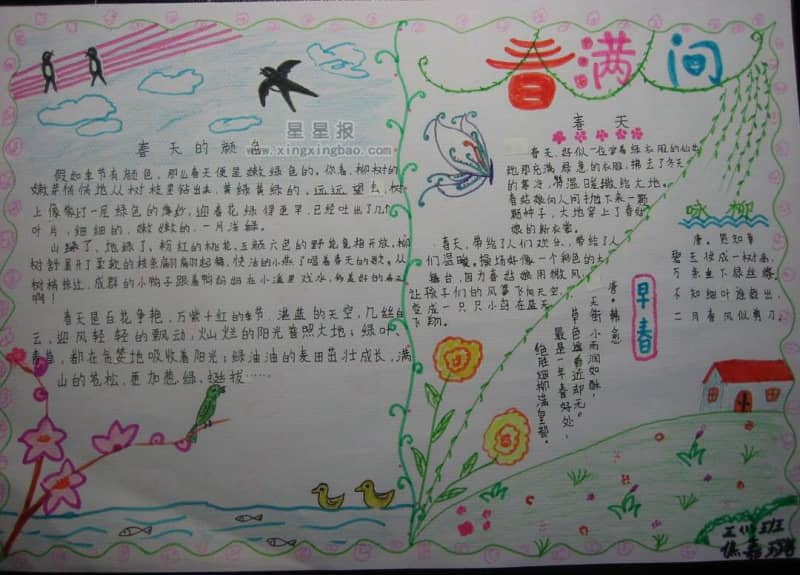 春满间
星星报
www.xingxingbao.com
春天的颜色
假如季节有颜色,那么春天便是嫩绿色的。你看,柳树的
嫩芽悄悄地从树枝里钻出来,黄绿黄绿的,远远望去,树
上像披了一层绿色的薄纱,迎春花绿得更早,已经吐出了几个
叶片,细细的,嫩嫩的,一片洁绿。
山绿了,地绿了,粉红的桃花,五颜六色的野花竞相开放,柳
树舒展开了柔软的枝条翩翩起舞,快活的小燕子唱着春天的歌。从
树梢掠过,成群的小鸭子跟着鸭妈妈在小溪里戏水,
啊!
春天是百花争艳,万紫千红的季节,湛蓝的天空,几丝白
云,迎风轻轻的飘动,灿烂的阳光普照大地;绿叶、
青草,都在包望地吸收着阳光;绿油油的麦田茁壮成长,满
山的苍松,更加葱绿、挺拔……
春天
春天,好似一位穿着绿衣服的仙女
她那充满绿意的衣服,拂去了冬天
的寒冷,将温暖撒给大地。
春姑娘向人间抛下来一颗
颗种子,大地穿上了春姑
娘的新衣裳。
春天,带给了人们欢乐,带给了人
们温暖。操场好像一个绿色的大
舞台,因为春姑娘用微风
让孩子们的风筝飞向天空,
变成一只只小鸟在蓝天
下翔。
早春
唐·韩愈
天街小雨润如酥,
草色遥看近却无。
最是一年春好处,
绝胜烟柳满皇都。
咏柳
唐。贺知章
碧玉妆成一树高,
万条垂下绿丝绦。
不知细叶谁裁出,
二月春风似剪刀。